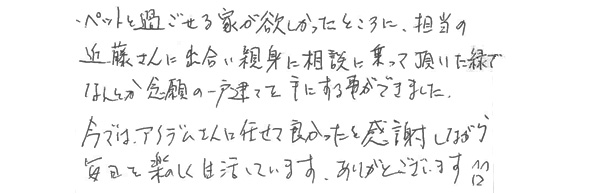 ・ペットと過ごせる家が欲しかったところに、担当の
近藤さんに出合い親身に相談に乗って頂いた縁で
なんとか念願の一戸建てを手にする事ができました。
今では、アイデムさんに任せて良かったと感謝しながら
毎日を楽しく生活しています、ありがとうございます